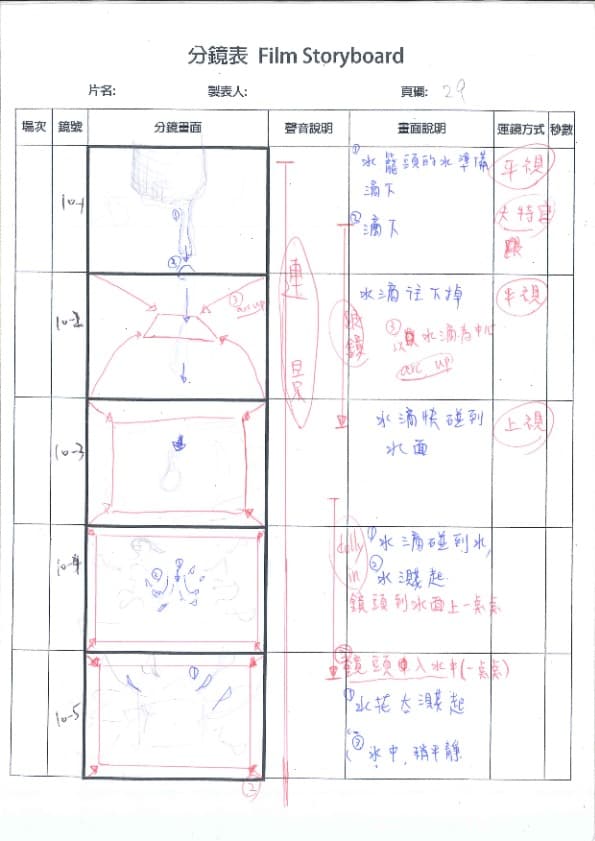 分鏡表 Film Storyboard
片名: 製表人: 頁碼: 29
場次 鏡號 分鏡畫面 聲音說明 畫面說明 運鏡方式 秒數
10-1
①
②
① 水龍頭的水準備
滴下
② 滴下
平視
大特寫
10-2
③ arc up
水滴往下掉
③ 以水滴為中心
arc up
平視
跟鏡
10-3
水滴快碰到
水面
上視
10-4
dolly in
① 水滴碰到水
② 水濺起
鏡頭到水面上一點點
10-5
①
②
② 鏡頭中入水中(一點點)
① 水花大濺起
② 水中，稍平靜